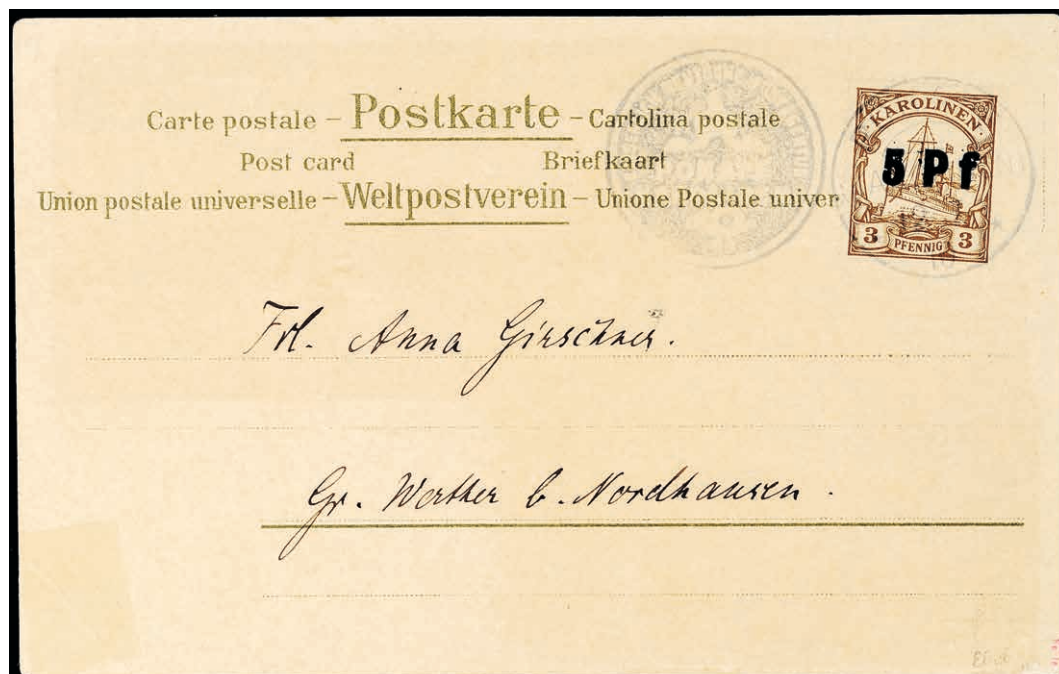 Carte postale – Postkarte – Cartolina postale
Post card Briefkaart
Union postale universelle – Weltpostverein – Unione Postale univer
KAROLINEN
5 Pf
3 PFENNIG 3
Frl. Anna Girschner.
Gr. Werther b. Nordhausen.